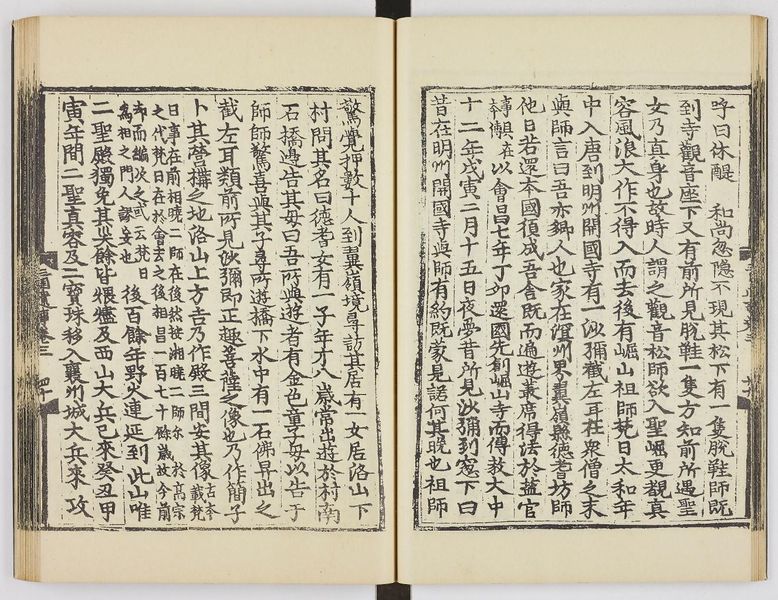 呼曰休醍　和尚忽隱不現其松下有一隻脫鞋師既
到寺觀音座下又有前所見脫鞋一隻方知前所遇聖
女乃真身也故時人謂之觀音松師欲入聖崛更覩真
容風浪大作不得入而去後有崛山祖師梵日太和年
中入唐到明州開國寺有一沙彌截左耳在衆僧之末
與師言曰吾亦鄉人也家在溟州界翼嶺縣德耆坊師
他日若還本國須成吾舍既而遍遊叢席得法於盐官
事具在本傳以會昌七年丁卯還國先創崛山寺而傳教大中
十二年戊寅二月十五日夜夢昔所見沙彌到窓下曰
昔在明州開國寺與師有約既蒙見諾何其晚也祖師
驚覺押數十人到翼嶺境尋訪其居有一女居洛山下
村問其名曰德耆女有一子年才八歲常出遊於村南
石橋邊告其母曰吾所與遊者有金色童子母以告于
師師驚喜與其子尋所遊橋下水中有一石佛舁出之
截左耳類前所見沙彌即正趣菩薩之像也乃作簡子
卜其營構之地洛山上方吉乃作殿三間安其像古本載梵
日事在前相曉二師在後然按湘曉二師尒於高宗
之代梵日在於會昌之後相昌一百七十餘歲故今前
却而編次之或云梵日
為相之門人謬妄也後百餘年野火連延到此山唯
二聖殿獨免其災餘皆煨燼及西山大兵已來癸丑甲
寅年間二聖真容及二寶珠移入襄州城大兵來攻